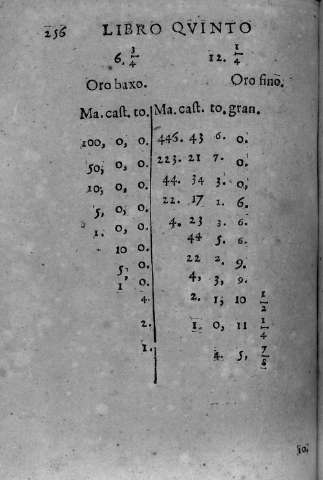 256 LIBRO QVINTO
6. 3/4 12. 1/4
Oro baxo. Oro fino.
Ma. cast. to. Ma. cast. to. gran.
100, 0, 0. 446. 43 6. 0.
50; 0; 0. 223. 21 7. 0.
10; 0, 0. 44. 34 3. 0,
5, 0, 0. 22. 17 1. 6.
1. 0, 0. 4. 23 3. 6.
10 0. 44 5. 6.
5, 0. 22 2. 9.
1 0. 4, 3, 9.
4. 2. 1; 10 1/2
2. 1. 0, 11 1/4
1. 4. 5, 7/8
10.